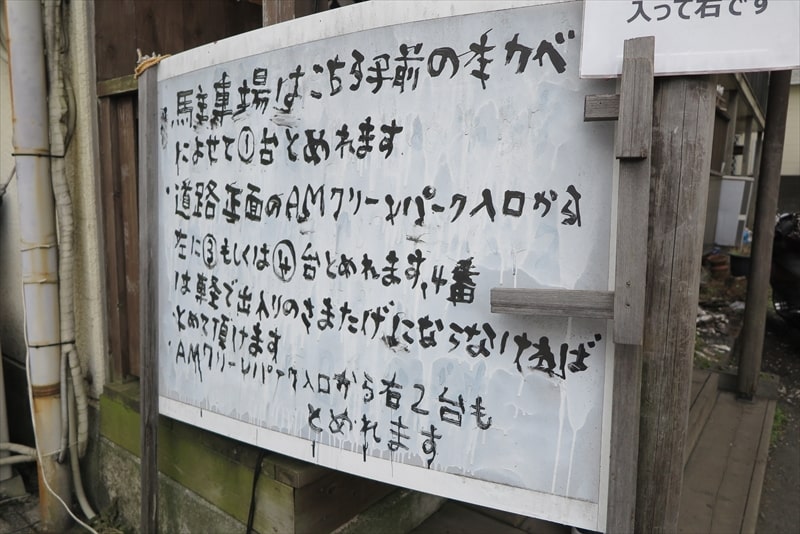 入って右です
馬主車場はこちら手前の本カベ
によせて①台とめれます
・道路正面のAMクリーンパーク入口から
左に③もしくは④台とめれます,4番
は車軽で出入りのさまたげにならなければ
とめて頂けます
・AMクリーンパーク入口から右2台も
とめれます